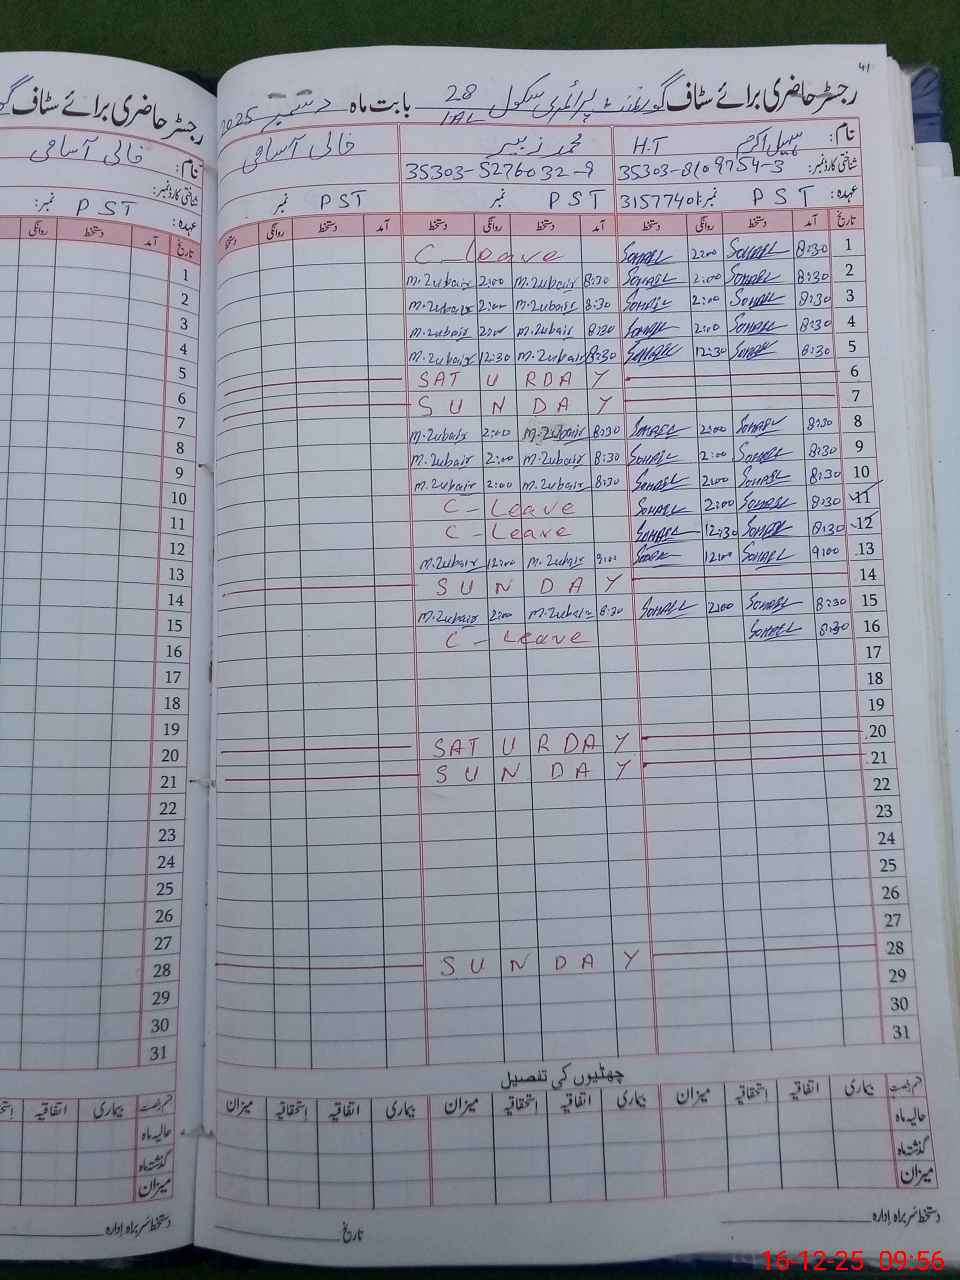 41
رجسٹر حاضری برائے سٹاف گورنمنٹ پرائمری سکول 28 بابت ماہ دسمبر 2025
1AL
نام: سہیل اکرم H.T محمد زبیر خالی آسامی
شناختی کارڈ نمبر: 35303-8109754-3 35303-5276032-9
عہدہ: PST نمبر 31577401 PST نمبر PST نمبر
تاریخ آمد دستخط روانگی دستخط آمد دستخط روانگی دستخط آمد دستخط روانگی دستخط
1 8:30 SOHAEL 2:00 SOHAEL C-Leave
2 8:30 SOHAEL 2:00 SOHAEL 8:30 M.Zubair 2:00 M.Zubair
3 8:30 SOHAEL 2:00 SOHAEL 8:30 M.Zubair 2:00 M.Zubair
4 8:30 SOHAEL 2:00 SOHAEL 8:30 M.Zubair 2:00 M.Zubair
5 8:30 SOHAEL 12:30 SOHAEL 8:30 M.Zubair 12:30 M.Zubair
6 SATURDAY
7 SUNDAY
8 8:30 SOHAEL 2:00 SOHAEL 8:30 M.Zubair 2:00 M.Zubair
9 8:30 SOHAEL 2:00 SOHAEL 8:30 M.Zubair 2:00 M.Zubair
10 8:30 SOHAEL 2:00 SOHAEL 8:30 M.Zubair 2:00 M.Zubair
11 8:30 SOHAEL 2:00 SOHAEL C-Leave
12 8:30 SOHAEL 12:30 SOHAEL C-Leave
13 9:00 SOHAEL 12:00 SOHAEL 9:00 M.Zubair 12:00 M.Zubair
14 SUNDAY
15 8:30 SOHAEL 2:00 SOHAEL 8:30 M.Zubair 2:00 M.Zubair
16 8:30 SOHAEL C-Leave
17
18
19
20 SATURDAY
21 SUNDAY
22
23
24
25
26
27
28 SUNDAY
29
30
31
چھٹیوں کی تفصیل
قسم رخصت بیماری اتفاقیہ استحقاقیہ میزان بیماری اتفاقیہ استحقاقیہ میزان بیماری اتفاقیہ استحقاقیہ میزان
حالیہ ماہ
گذشتہ ماہ
میزان
دستخط سربراہ ادارہ تاریخ
رجسٹر حاضری برائے سٹاف
نام: خالی آسامی
شناختی کارڈ نمبر:
عہدہ: PST نمبر:
تاریخ آمد دستخط روانگی
1
2
3
4
5
6
7
8
9
10
11
12
13
14
15
16
17
18
19
20
21
22
23
24
25
26
27
28
29
30
31
قسم رخصت بیماری اتفاقیہ
حالیہ ماہ
گذشتہ ماہ
میزان
دستخط سربراہ ادارہ
16-12-25 09:56